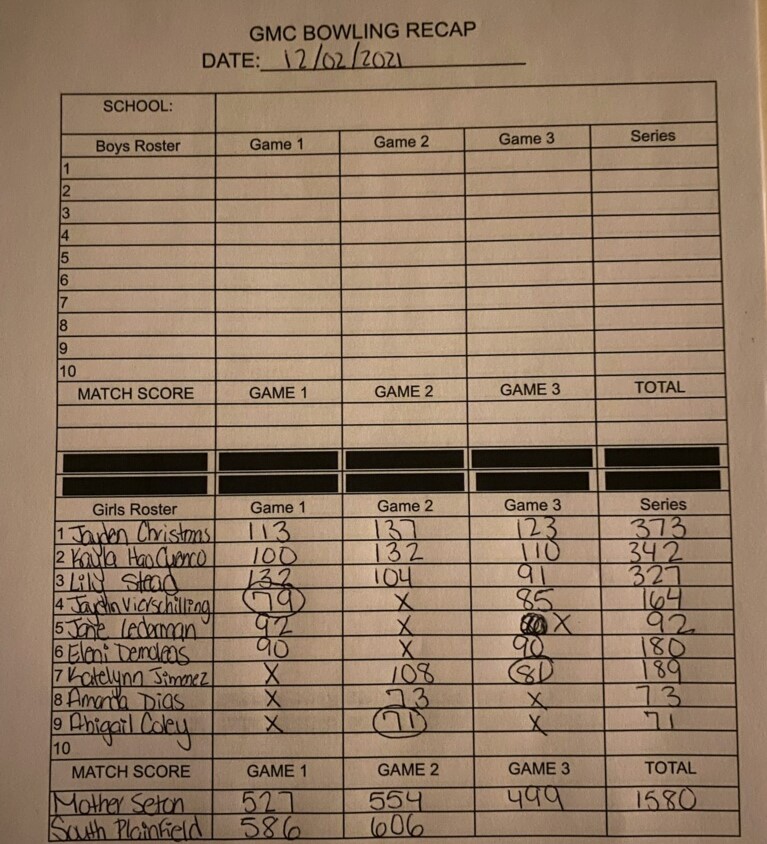 GMC BOWLING RECAP
DATE: 12/02/2021
SCHOOL:
Boys Roster Game 1 Game 2 Game 3 Series
1
2
3
4
5
6
7
8
9
10
MATCH SCORE GAME 1 GAME 2 GAME 3 TOTAL
Girls Roster Game 1 Game 2 Game 3 Series
1 Jayden Christmas 113 137 123 373
2 Kayla HaoCuenco 100 132 110 342
3 Lily Stead 132 104 91 327
4 Vierschilling 79 X 85 164
5 Lederman 92 X X 92
6 Eleni 90 X 90 180
7 Katelynn Jimmez X 108 81 189
8 Amanda Dias X 73 X 73
9 Abigail Coley X 71 X 71
10
MATCH SCORE GAME 1 GAME 2 GAME 3 TOTAL
Mother Seton 527 554 499 1580
South Plainfield 586 606